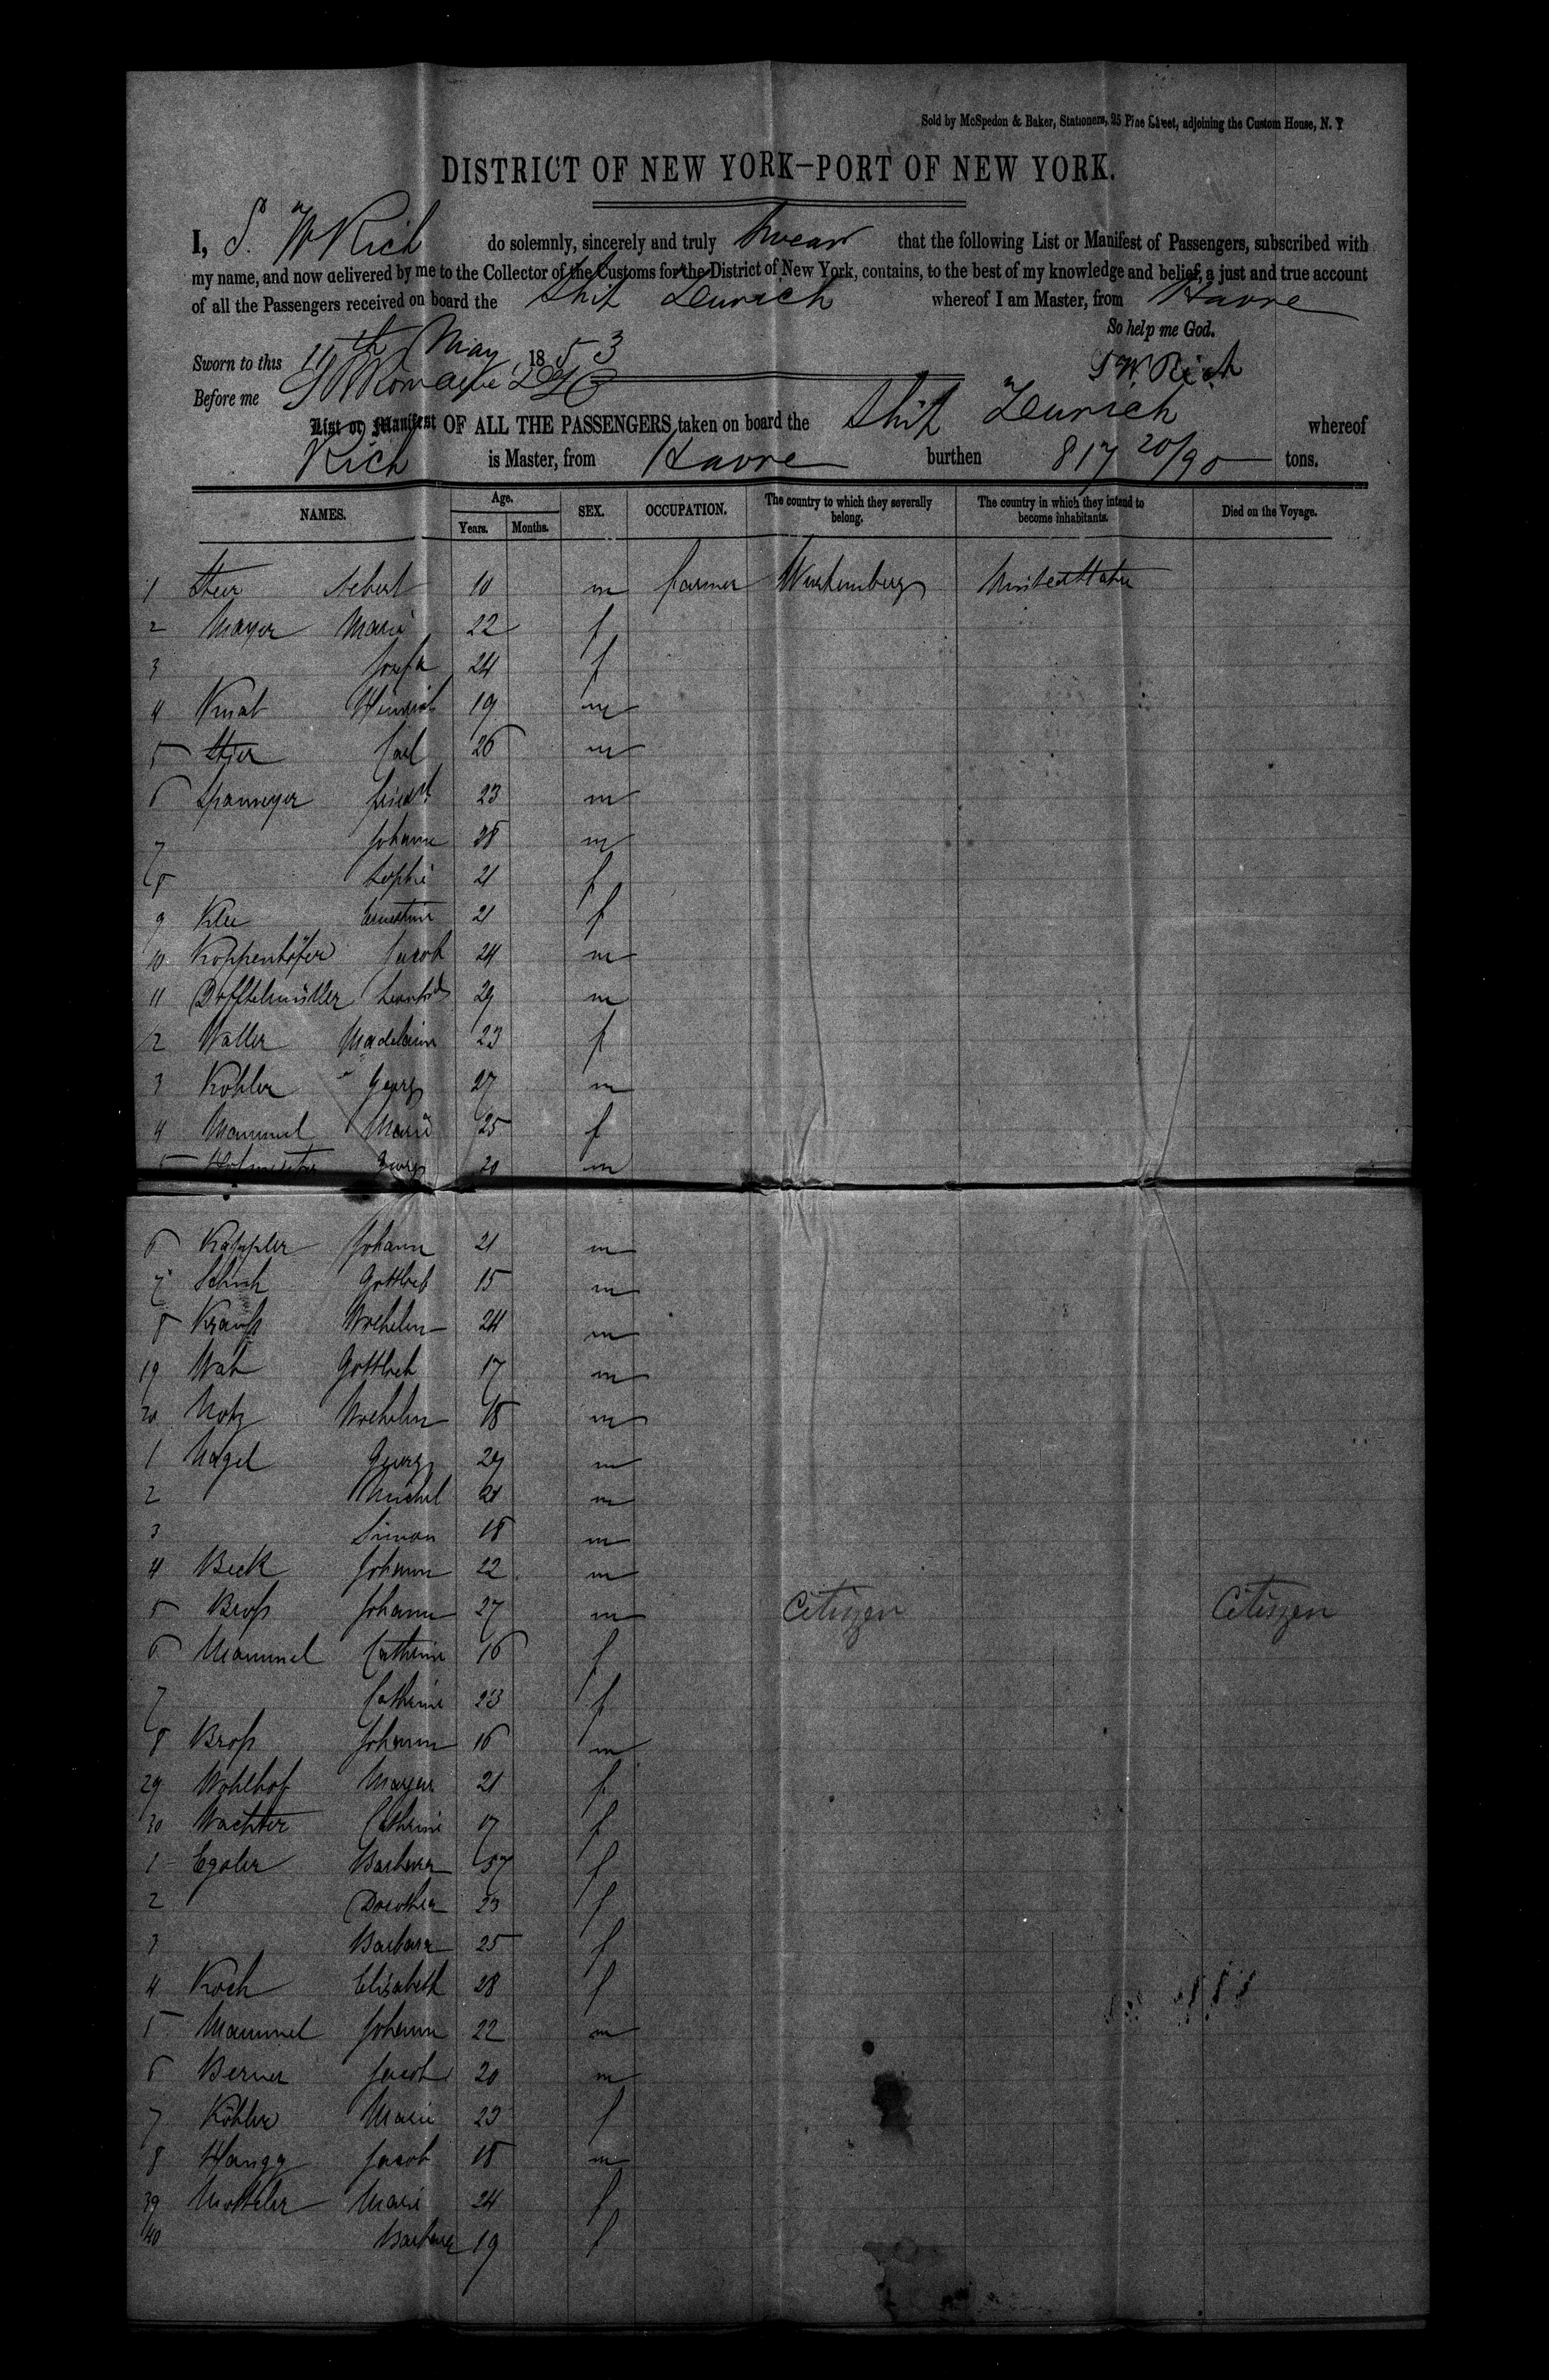 Sold by McSpedon & Baker, Stationers, 25 Pine Street, adjoining the Custom House, N. Y
DISTRICT OF NEW YORK—PORT OF NEW YORK.
I, S. W Rich do solemnly, sincerely and truly swear that the following List or Manifest of Passengers, subscribed with
my name, and now delivered by me to the Collector of the Customs for the District of New York, contains, to the best of my knowledge and belief, a just and true account
of all the Passengers received on board the Ship Zeurich whereof I am Master, from Havre
So help me God.
Sworn to this 11th May 1853
S W Rich
Before me
List or Manifest OF ALL THE PASSENGERS taken on board the Ship Zeurich whereof
Rich is Master, from Havre burthen 817 20/90 tons.
NAMES. Age. Years. Months. SEX. OCCUPATION. The country to which they severally belong. The country in which they intend to become inhabitants. Died on the Voyage.
1 10 m farmer Wurtemberg United States
2 Mayer Marie 22 f
3 Josepha 24 f
4 Heinrich 19 m
5 Carl 26 m
6 23 m
7 Johann 28 m
8 Sophie 21 f
9 Klee Ernestine 21 f
10 Koppenhöfer Jacob 24 m
11 29 m
2 Waller Madelaine 23 f
3 Kohler Georg 27 m
4 Mammel Marie 25 f
5 Hofmeister Georg 20 m
6 Kappler Johann 21 m
7 Gottlieb 15 m
8 Krauß Wilhelm 24 m
19 Gottlieb 17 m
20 Notz Wilhelm 18 m
1 Nagel Georg 29 m
2 Michel 21 m
3 Simon 18 m
4 Beck Johann 22 m
5 Broß Johann 27 m Citizen Citizen
6 Mammel Catherine 16 f
7 Catherine 23 f
8 Broß Johann 16 m
29 Wohlhof 21 f
30 Wachter Catherine 17 f
1 Egoler Barbara 57 f
2 Dorothea 23 f
3 Barbara 25 f
4 Koch Elisabeth 28 f
5 Mammel Johann 22 m
6 Berner Jacob 20 m
7 Köhler Marie 23 f
8 Hangg Jacob 18 m
39 Motteler Marie 24 f
40 Barbara 19 f